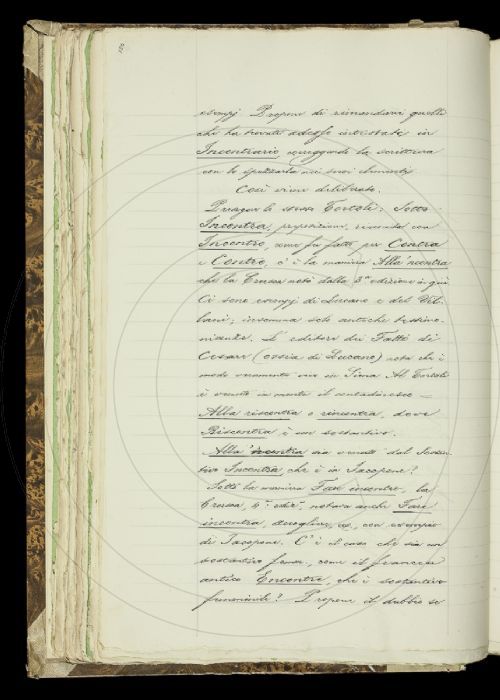 esempj. Propone di rimandarvi quelli
che ha trovato adesso intestate in
Incentrario correggendo la scrittura
con lo spezzarla nei suoi elementi.
Così viene deliberato.
Prosegue lo stesso Tortoli: Sotto
Incontra, preposizione, riunita con
Incontro, come fu fatto per Contra
e Contro, c'è la maniera Alla 'ncontra
che la Crusca notò dalla 3ª edizione in qui.
Ci sono esempj di Lucano e del Vil-
lani; insomma solo antiche testimo-
nianze. L'editore dei Fatti di
Cesare (ossia di Lucano) nota che è
modo veramente vivo in Siena. Al Tortoli
è venuto in mente il contadinesco =
Alla riscontra o rincontra, dove
Riscontra è un sostantivo.
Alla 'ncontra sia venuto dal sostan-
tivo Incontra che è in Jacopone?
Sotto la maniera Fare incontro, la
Crusca, 4ª edizᵉ, notava anche Fare
incontra, accoglier, con esempio
di Jacopone. C'è il caso che sia un
sostantivo femm., come il francese
antico Encontre, che è sostantivo
femminile? Propone il dubbio se